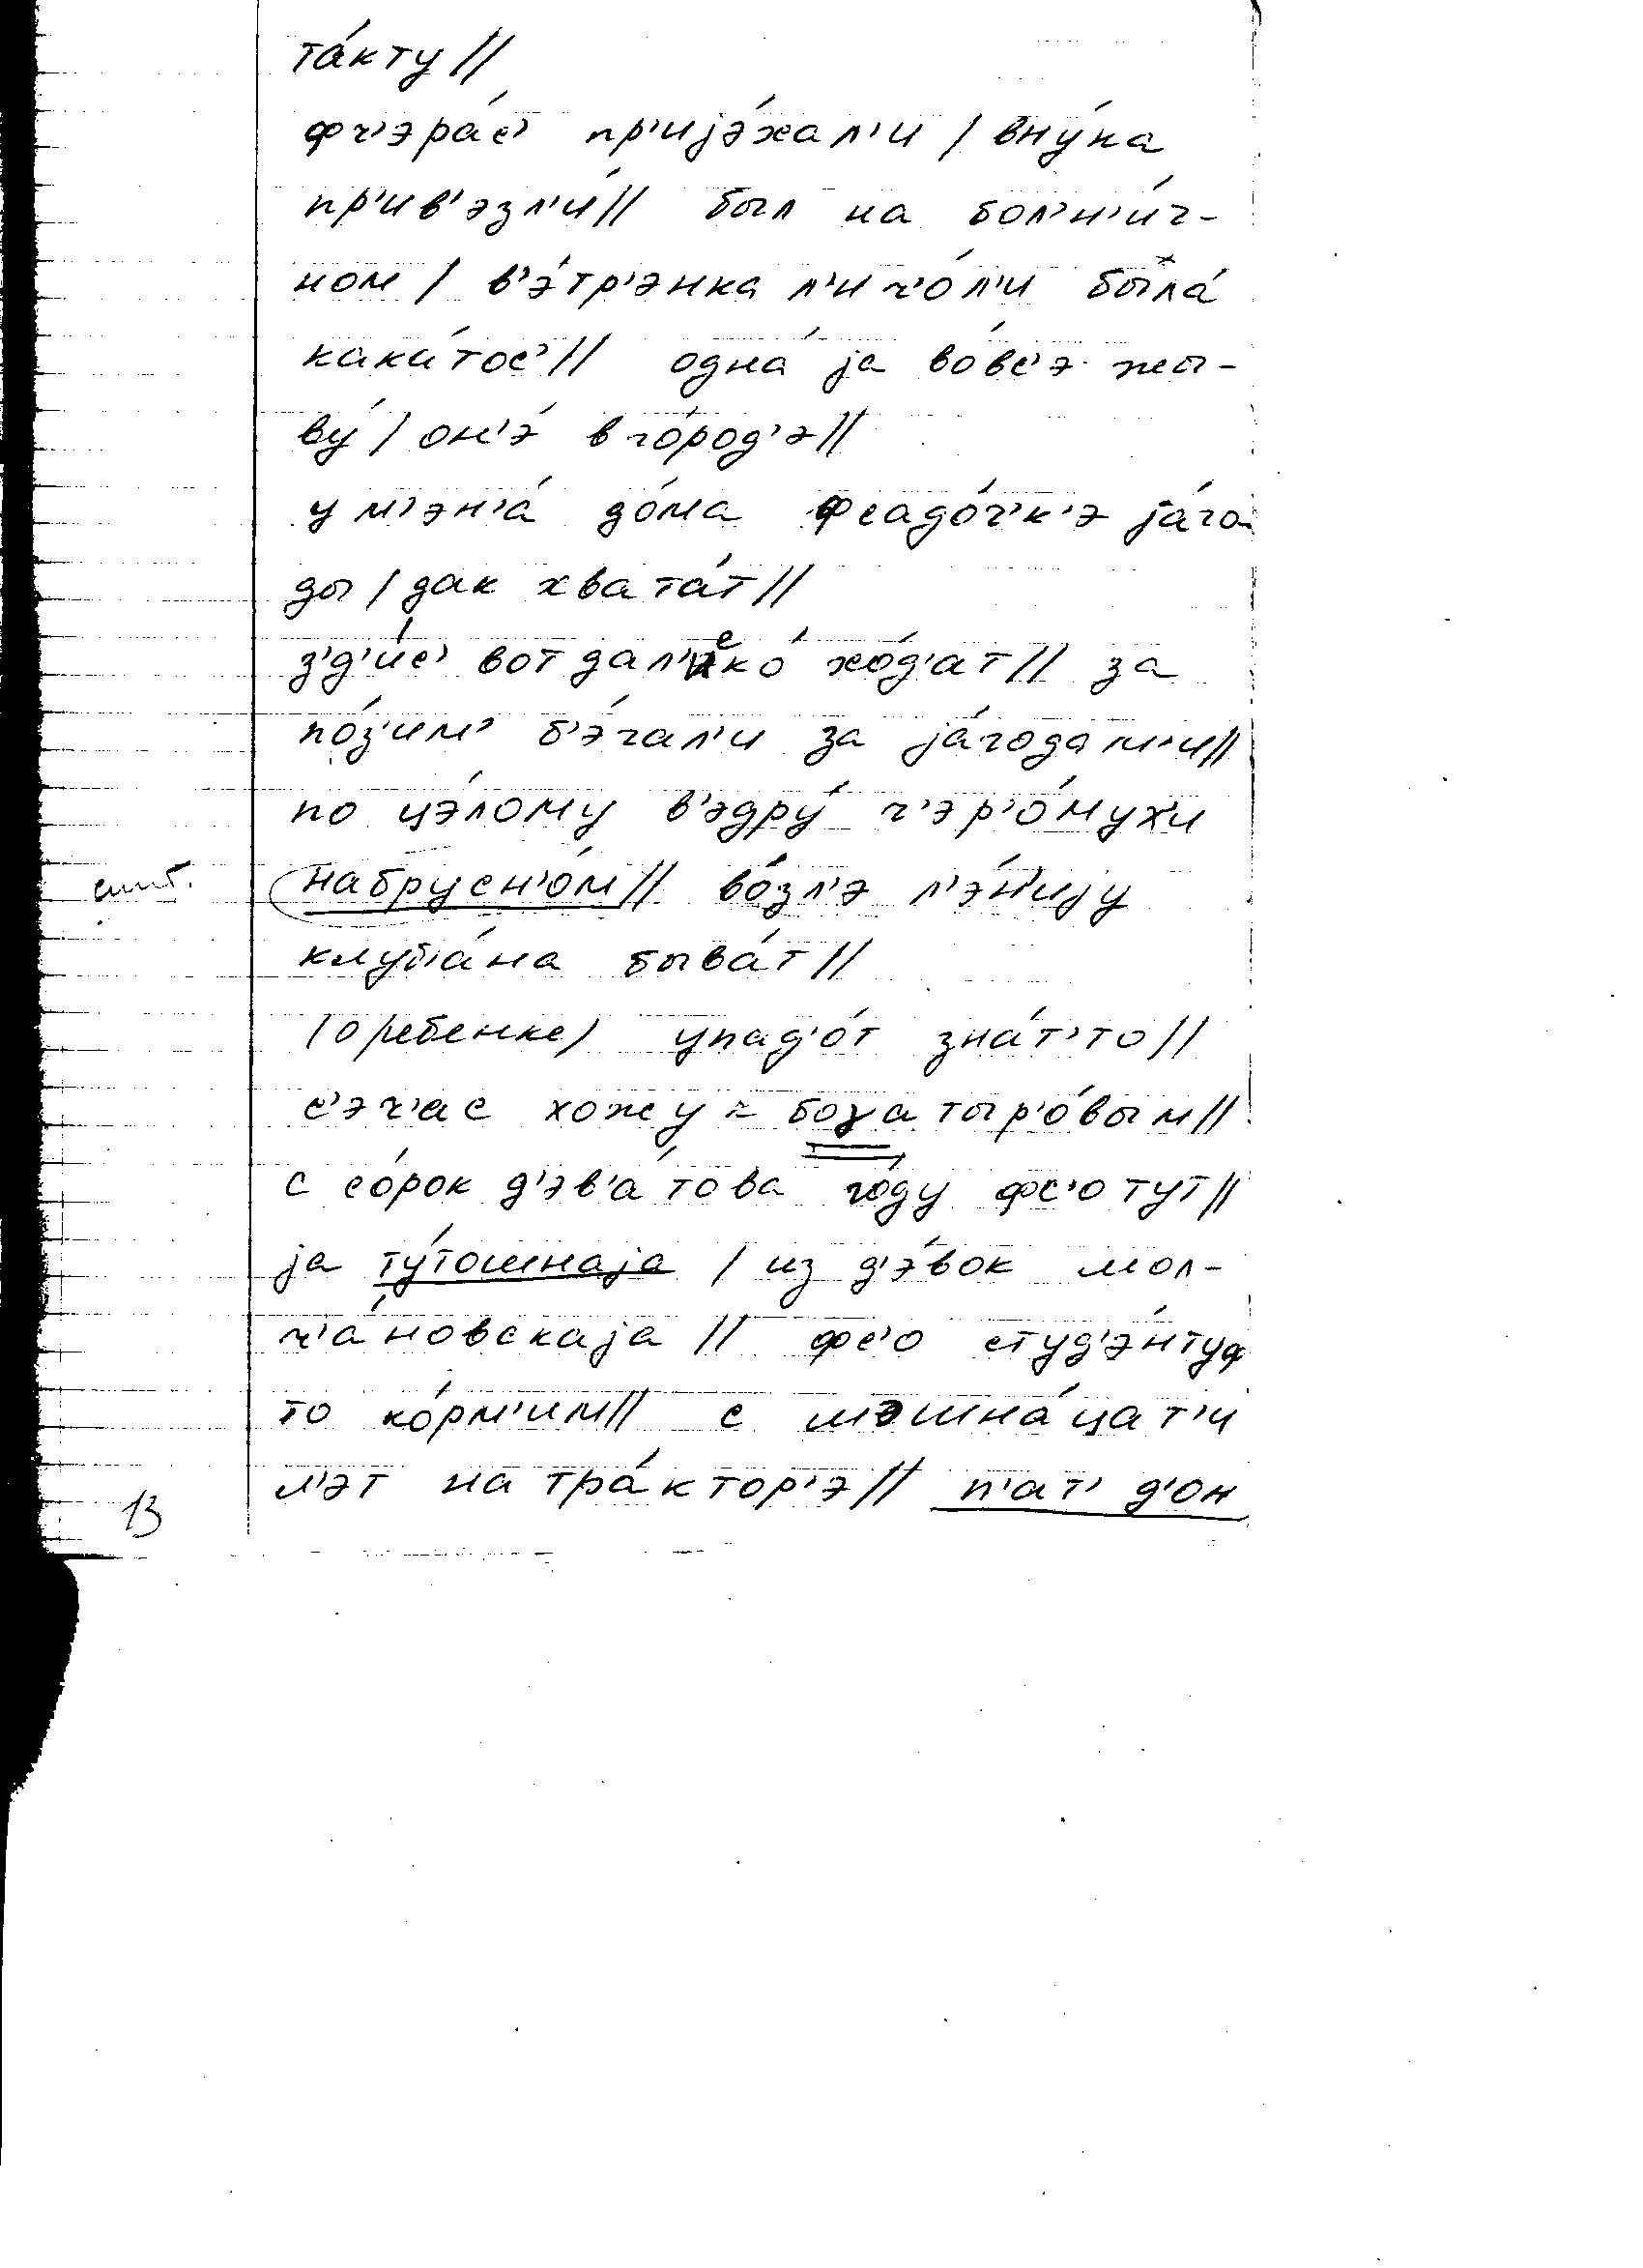 та́кту //
фч'эра́с' пр'ијэ́жал'и / вну́ка
пр'ив'эзл'и́ // был на бол'н'и́ч-
ном / в'э́тр'энка л'и ч'о́л'и была́
кака́тос' // одна́ ја во́вс'э жы-
ву́ / он'э́ в го́род'э //
у м'эн'а́ до́ма ф садо́ч'к'э ја́го-
ды / дак хвата́т //
з'д'и́с' вот дал'еко́ хо́д'ат // за
по́з'им' б'э́гал'и за ја́годам'и //
по цэ́лому в'эдру́ ч'эр'о́мухи
набрусн'о́м // во́зл'э л'э́н'ију
клуб'а́на быва́т //
(о ребенке) упад'о́т зна́т'то //
с'эч'ас хожу = боγатыр'о́вым //
с со́рок д'эв'а́това го́ду фс'о тут //
ја ту́тошнаја / из д'э́вок мол-
ч'а́новскаја // фс'о студ'э́нтуф
то ко́рм'им // с шэшна́цат'и
л'эт на тра́ктор'э // п'ат' д'он
13